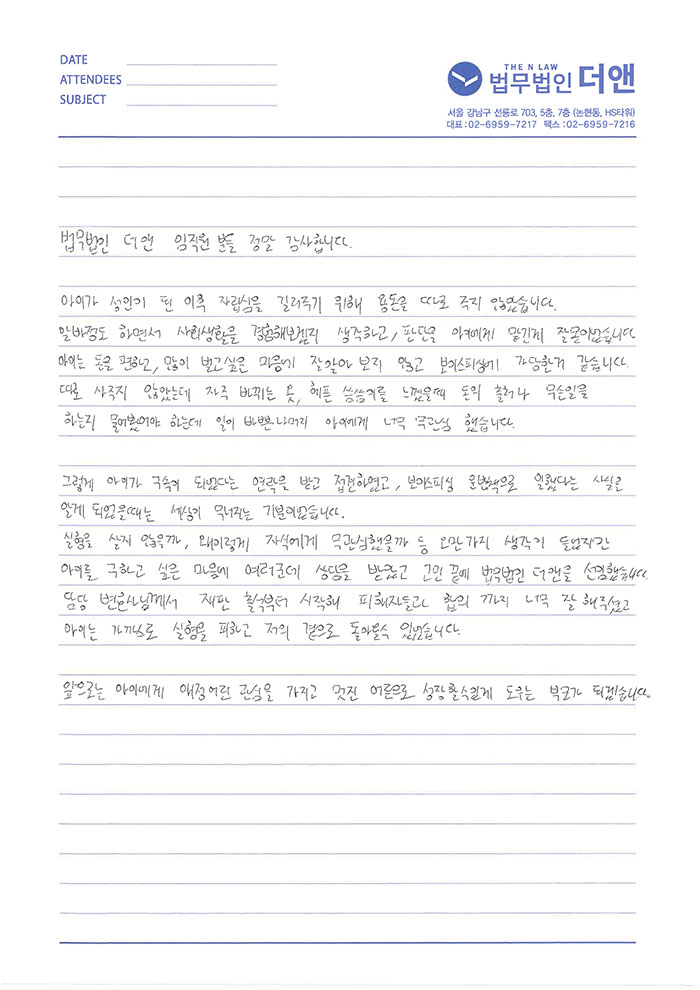 DATE
ATTENDEES
SUBJECT
THE N LAW
법무법인 더앤
서울 강남구 선릉로 703, 5층, 7층 (논현동, HS타워)
대표:02-6959-7217 팩스:02-6959-7216
법무법인 더앤 임직원 분들 정말 감사합니다.
아이가 성인이 된 이후 자립심을 길러주기 위해 용돈을 따로 주지 않았습니다.
알바정도 하면서 사회생활을 경험해보겠지 생각하고, 판단을 아이에게 맡긴게 잘못이었습니다
아이는 돈을 편하고, 많이 벌고싶은 마음에 잘 알아 보지 않고 보이스피싱에 가담한거 같습니다.
따로 사주지 않았는데 자주 바뀌는 옷, 헤픈 씀씀이를 느꼈을때 돈의 출처나 무슨일을
하는지 물어봤어야 하는데 일이 바쁜나머지 아이에게 너무 무관심 했습니다.
그렇게 아이가 구속이 되었다는 연락을 받고 접견하였고, 보이스피싱 운반책으로 일했다는 사실을
알게 되었을때는 세상이 무너지는 기분이었습니다.
실형을 살지 않을까, 왜이렇게 자식에게 무관심했을까 등 오만가지 생각이 들었지만
아이를 구하고 싶은 마음에 여러군데 상담을 받았고 고민 끝에 법무법인 더앤을 선임했습니다.
담당 변호사님께서 재판 출석부터 시작해 피해자들과 합의 까지 너무 잘 해주셨고
아이는 가까스로 실형을 피하고 저의 곁으로 돌아올수 있었습니다.
앞으로는 아이에게 애정어린 관심을 가지고 멋진 어른으로 성장할수있게 도우는 부모가 되겠습니다.